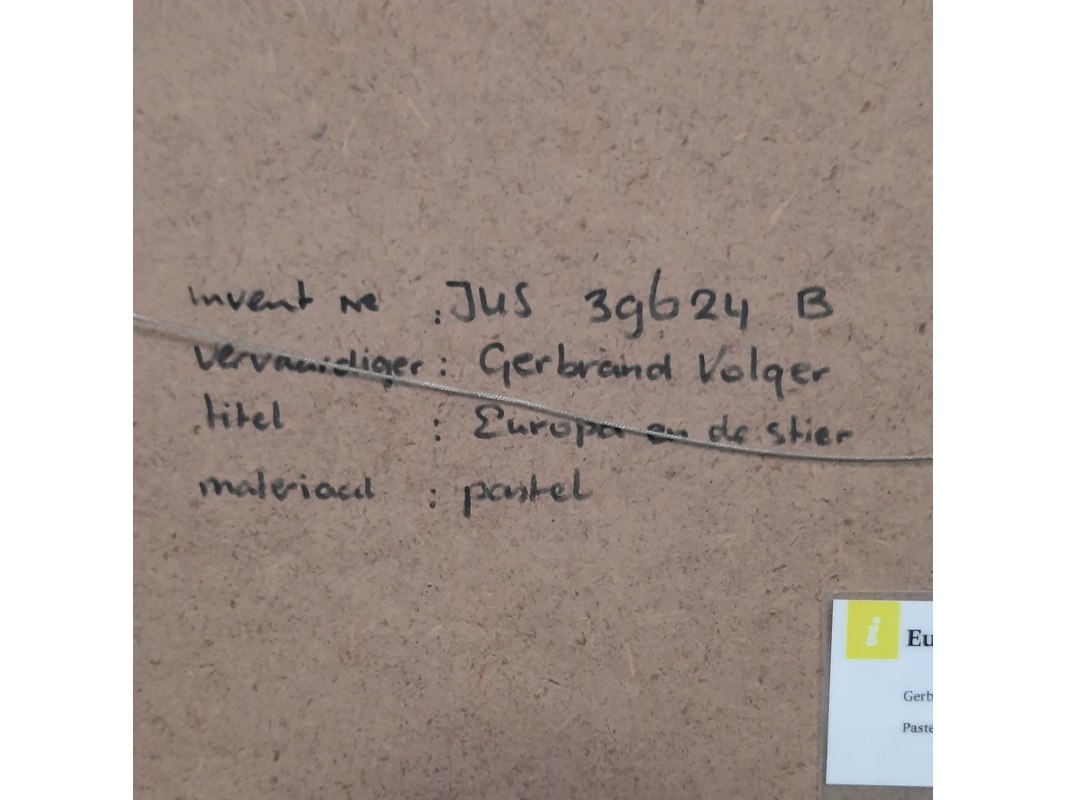 Invent nr : JUS 39624 B
vervaardiger : Gerbrand Volger
titel : Europa en de stier
materiaal : pastel
i Eu
Gerb
Paste